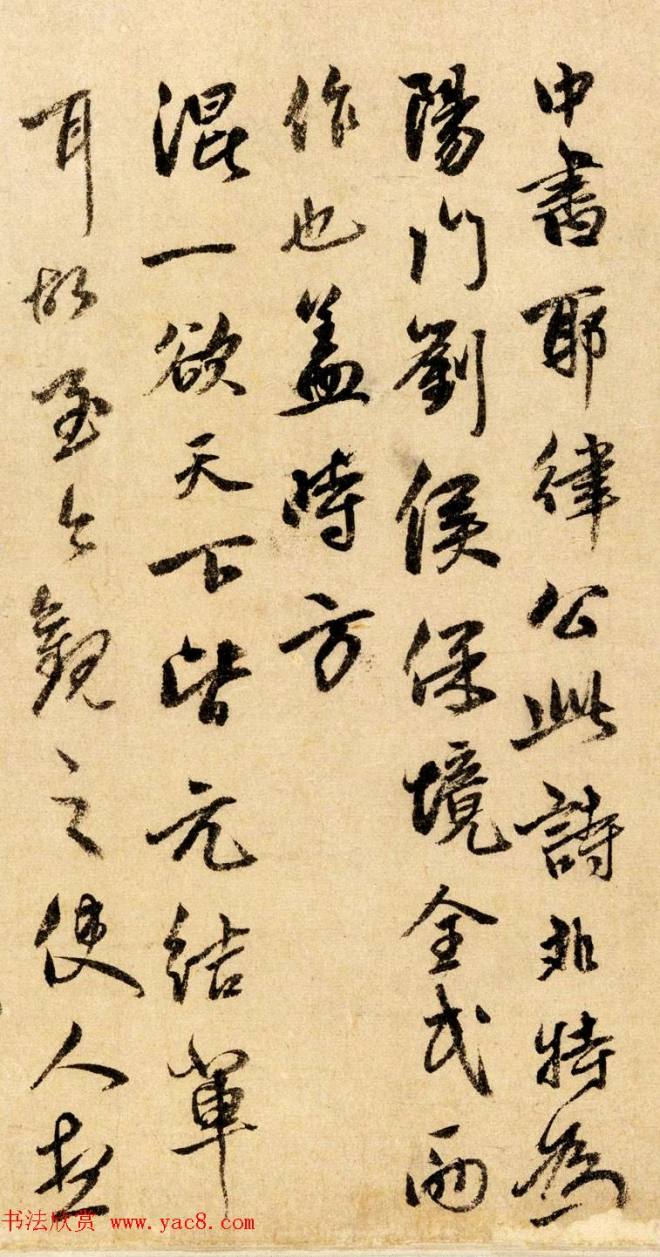 中書耶律公此詩非特為
陽門劉侯保境全民而
作也蓋時方
混一欲天下皆元結輩
耳故至今觀之使人
书法欣赏 www.yac8.com